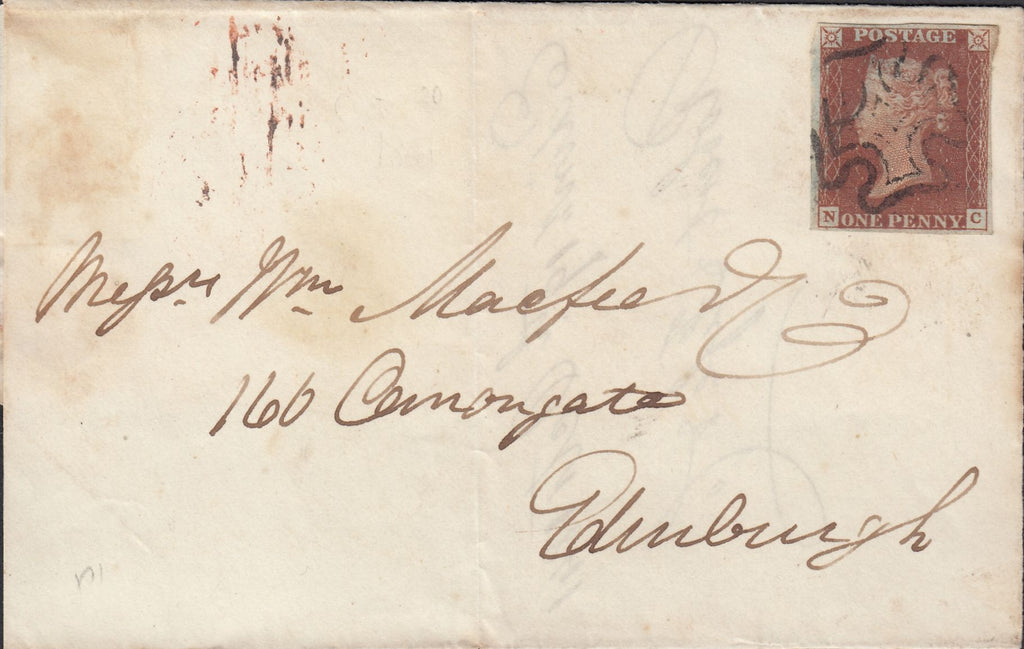 POSTAGE
N ONE PENNY. C
Messrs Wm Macfie &
160 Cannongate
Edinburgh